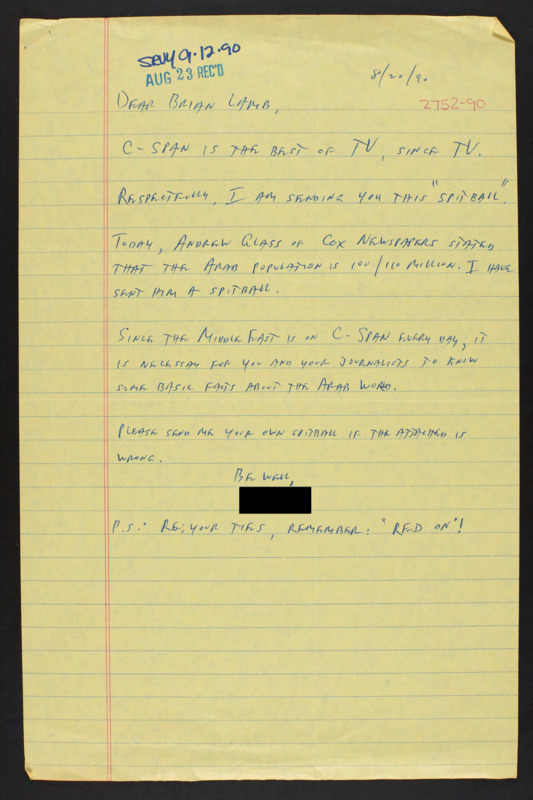 AUG 23 REC'D
8/20/90
2752-90
DEAR BRIAN LAMB,
C-SPAN IS THE BEST OF TV, SINCE TV.
RESPECTFULLY, I AM SENDING YOU THIS "SPITBALL".
TODAY, ANDREW GLASS OF COX NEWSPAPERS STATED
THAT THE ARAB POPULATION IS 100/110 MILLION. I HAVE
SENT HIM A SPITBALL.
SINCE THE MIDDLE EAST IS ON C-SPAN EVERY DAY, IT
IS NECESSAY FOR YOU AND YOUR JOURNALISTS TO KNOW
SOME BASIC FACTS ABOUT THE ARAB WORLD.
PLEASE SEND ME YOUR OWN SPITBALL IF THE ATTACHED IS
WRONG.
BE WELL,
P.S.: RE: YOUR TIES, REMEMBER: "RED ON"!